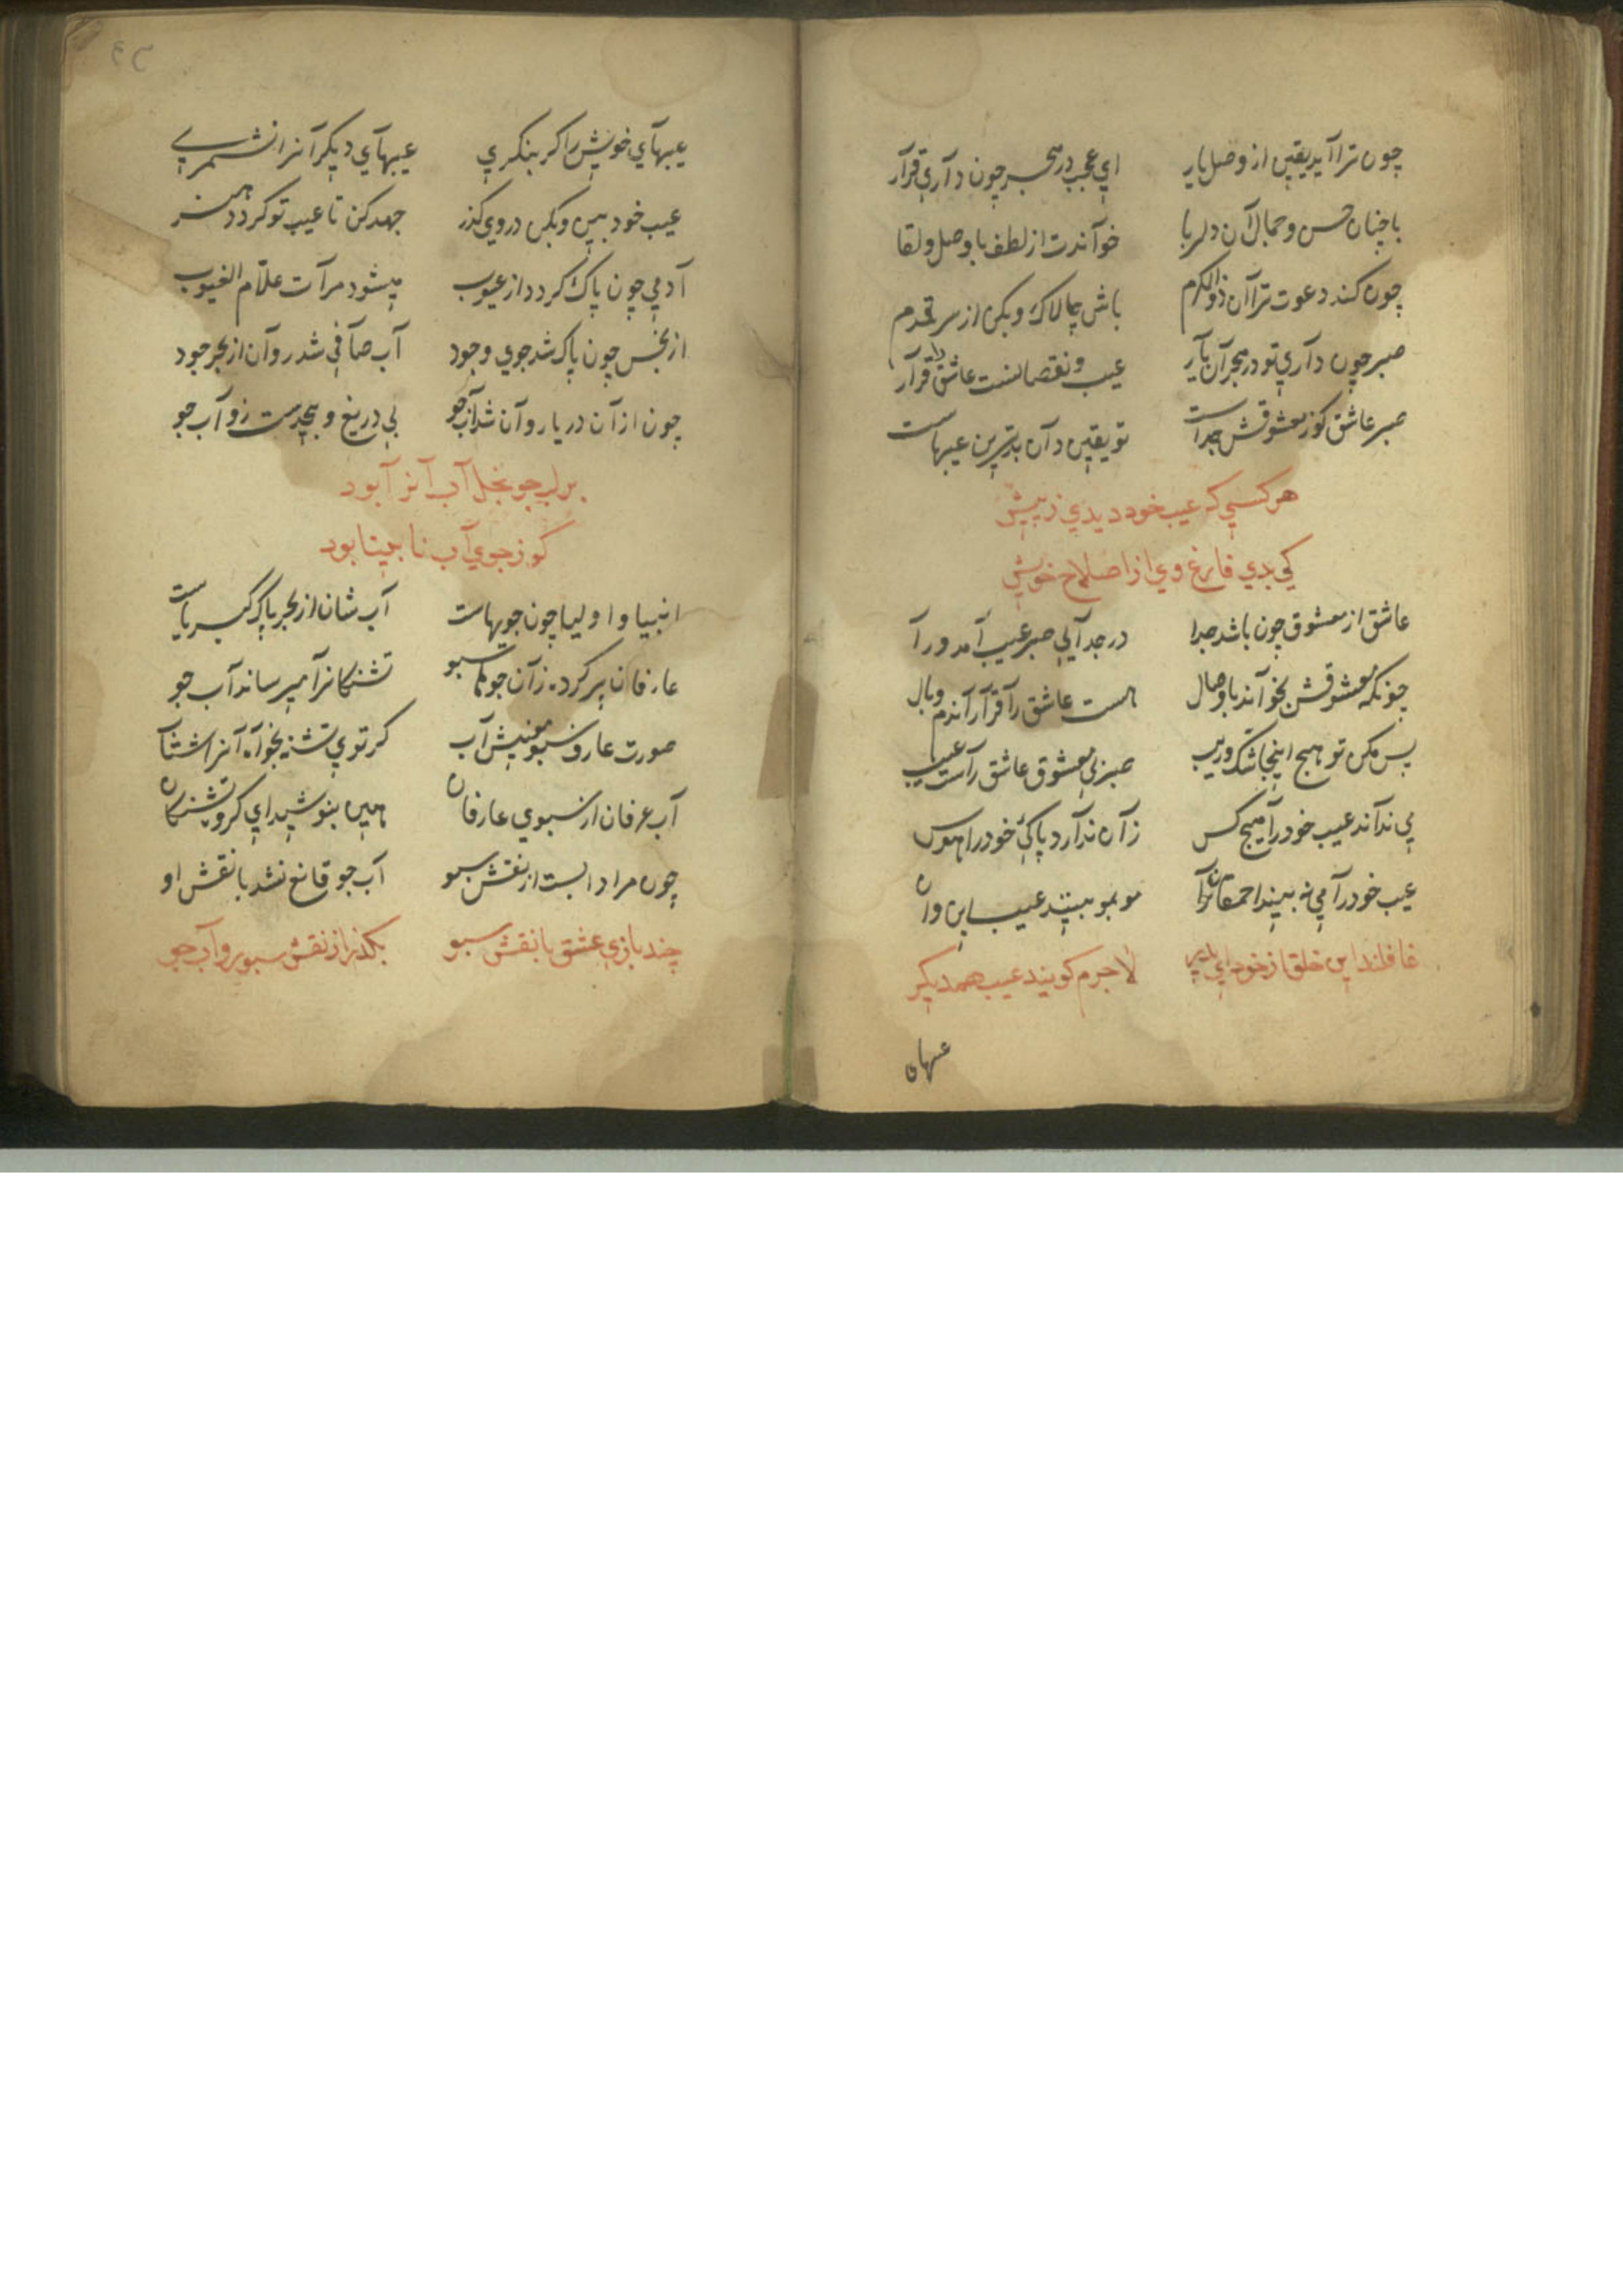 چون ترا آید یقین از وصل یار ای عجب در هجر چون داری قرار
با چنان حسن و جمال آن دلربا خواندت از لطف با وصل و لقا
چون کند دعوت ترا آن ذوالکرم باش چالاک و بکن از سر قدم
صبر چون داری تو در هجران یار عیب و نقصانست عاشق را قرار
صبر عاشق کوز معشوقش جداست تو یقین دان بدترین عیبهاست
هر کسی کر عیب خود دیدی ز پیش
کی بدی فارغ وی از اصلاح خویش
عاشق از معشوق چون باشد جدا در جدایی صبر عیب آمد ورا
چونکه معشوقش بخواند با وصال هست عاشق را قرار آندم وبال
پس مکن تو هیچ اینجا شک و ریب صبر بی معشوق عاشق راست عیب
می نداند عیب خود را هیچ کس زان ندارد پاکی خود را هوس
عیب خود را می نه بیند احمقانرا مو بمو بیند عیب این و آن
غافلند این خلق از خود ای پدر لاجرم کویند عیب همدیکر
عیبهای
۴۳
عیبهای خویش را کر بنکری عیبهای دیکرانرا نشمری
عیب خود بین و بکن در وی کذر جهد کن تا عیب تو کردد هنر
آدمی چون پاک کردد از عیوب میشود مرآت علّام الغیوب
از نجس چون پاک شد جوی وجود آب صافی شد روان از بحر جود
چون از آن دریا روان شد آب جو بی دریغ و بیحدست زو آب جو
بر لب جو بخل آب آنرا بود
کو ز جوی آب نابینا بود
انبیا و اولیا چون جویهاست آب شان از بحر پاک کبریاست
عارفان پر کرده زان جوها سبو تشنکانرا میرساند آب جو
صورت عارف سبو معنیش آب کر توی تشنه بخواه آنرا شتاب
آب عرفان از سبوی عارفان هین بنوشید ای کروه تشنکان
چون مراد آبست از نقش سبو آب جو قانع نشد با نقش او
چند بازی عشق با نقش سبو بکذر از نقش سبو رو آب جو